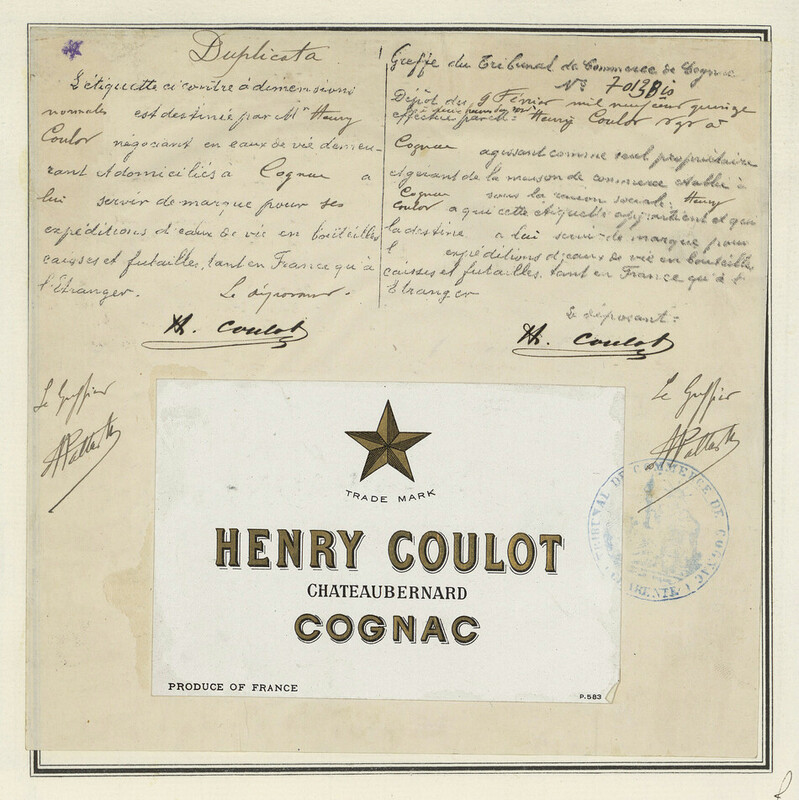 Duplicata
L'étiquette ci contre à dimensions
normales est destinée par Mr Henry
Coulot négociant en eaux de vie demeu-
rant & domicilié à Cognac à
lui servir de marque pour ses
expéditions d'eaux de vie en bouteilles
caisses et futailles, tant en France qu'à
l'étranger. Le déposant.
H. Coulot
Greffe du Tribunal de Commerce de Cognac
No 7013 Bis
Dépôt du 9 Février mil neuf cent quinze
effectué par Mr Henry Coulot
Cognac agissant comme seul propriétaire
et gérant de la maison de commerce établie à
Cognac sous la raison sociale: Henry
Coulot à qui cette étiquette appartient et qui
la destine à lui servir de marque pour
expéditions d'eaux de vie en bouteilles
caisses et futailles, tant en France qu'à l'
Etranger
Le déposant:
H. Coulot
Le Greffier
Le Greffier
TRIBUNAL DE COMMERCE DE COGNAC
CHARENTE
TRADE MARK
HENRY COULOT
CHATEAUBERNARD
COGNAC
PRODUCE OF FRANCE
P.583